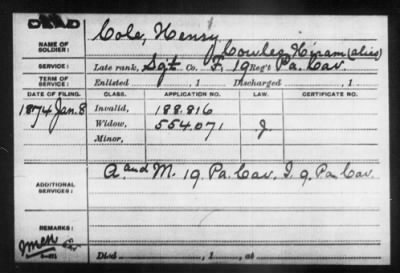 DEAD
Cole, Henry
NAME OF SOLDIER:
Cowles, Hiram (alias)
SERVICE: Late rank, Sgt. Co. F, 19 Reg't Pa. Cav.
TERM OF SERVICE: Enlisted , 1 Discharged , 1
DATE OF FILING. CLASS. APPLICATION NO. LAW. CERTIFICATE NO.
1874 Jan. 8 Invalid, 188.816
Widow, 554.071 J.
Minor,
ADDITIONAL SERVICES: A and M. 19. Pa. Cav. I. 9. Pa. Cav.
REMARKS:
Died , 1 , at